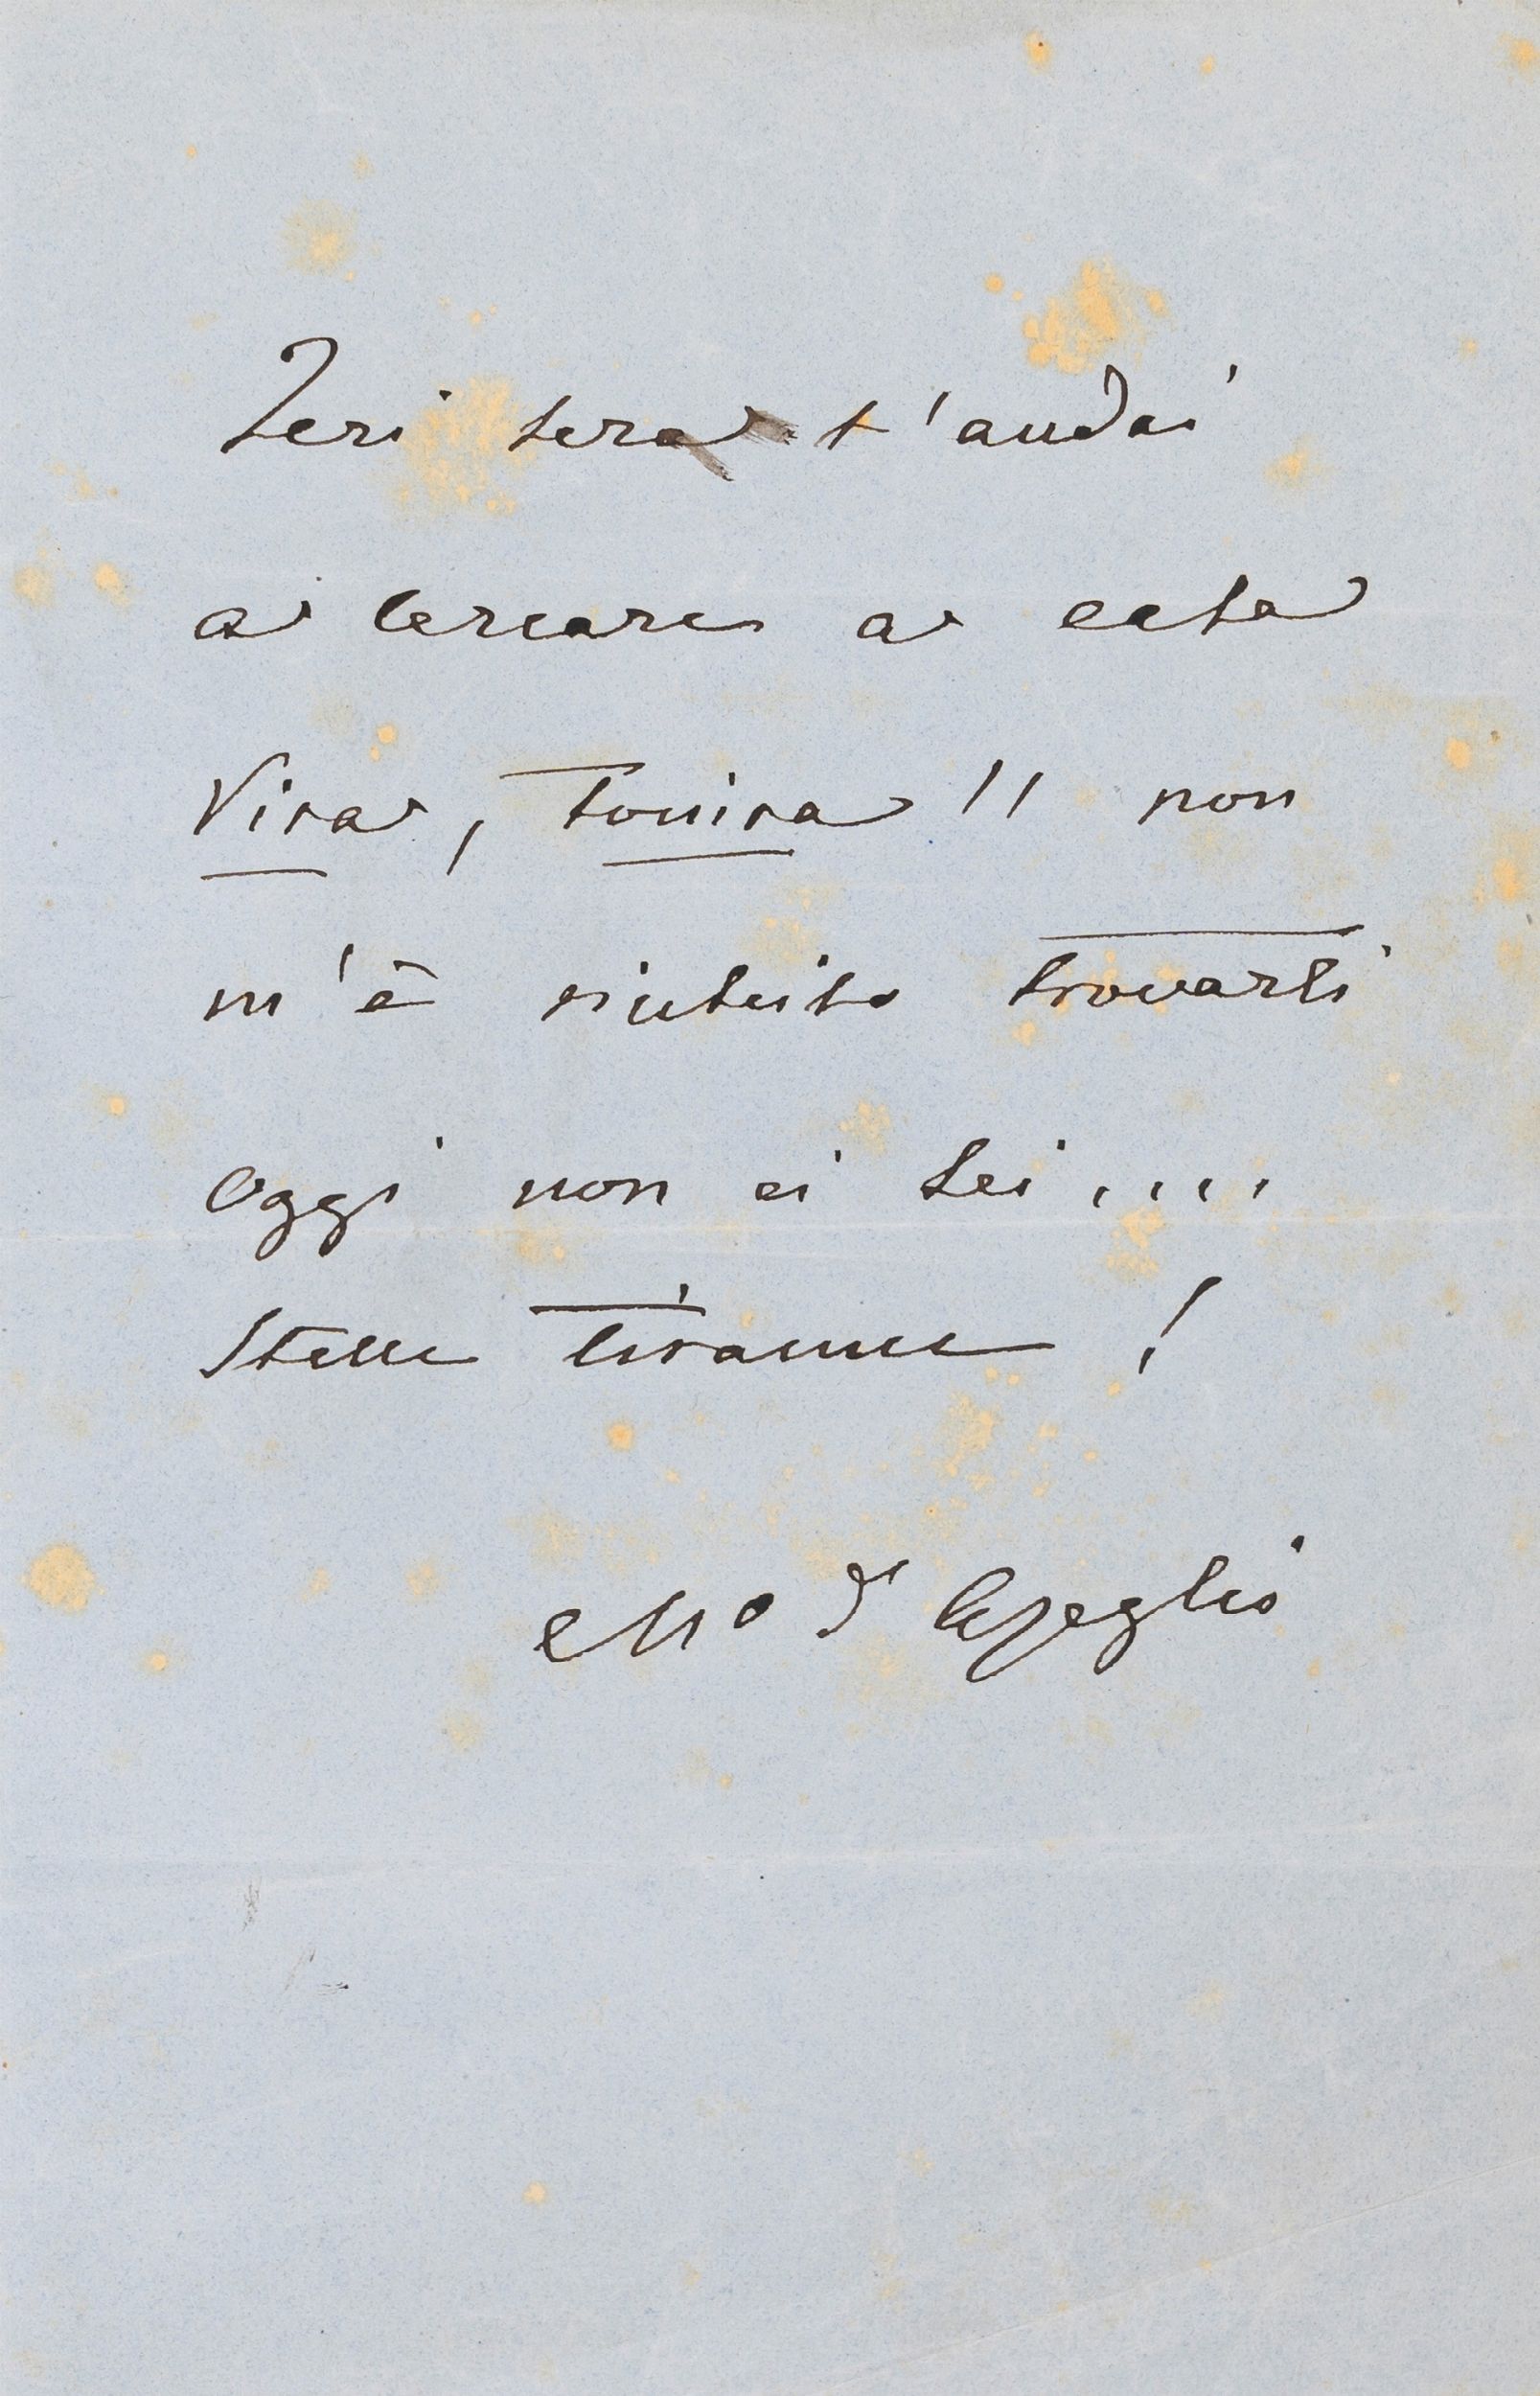 Ieri sera t'andai
a cercare a casa
Vira, Tonira!! non
m'è riuscito trovarti
Oggi non ci sei....
Stelle tiranne!
Mo d'Azeglio